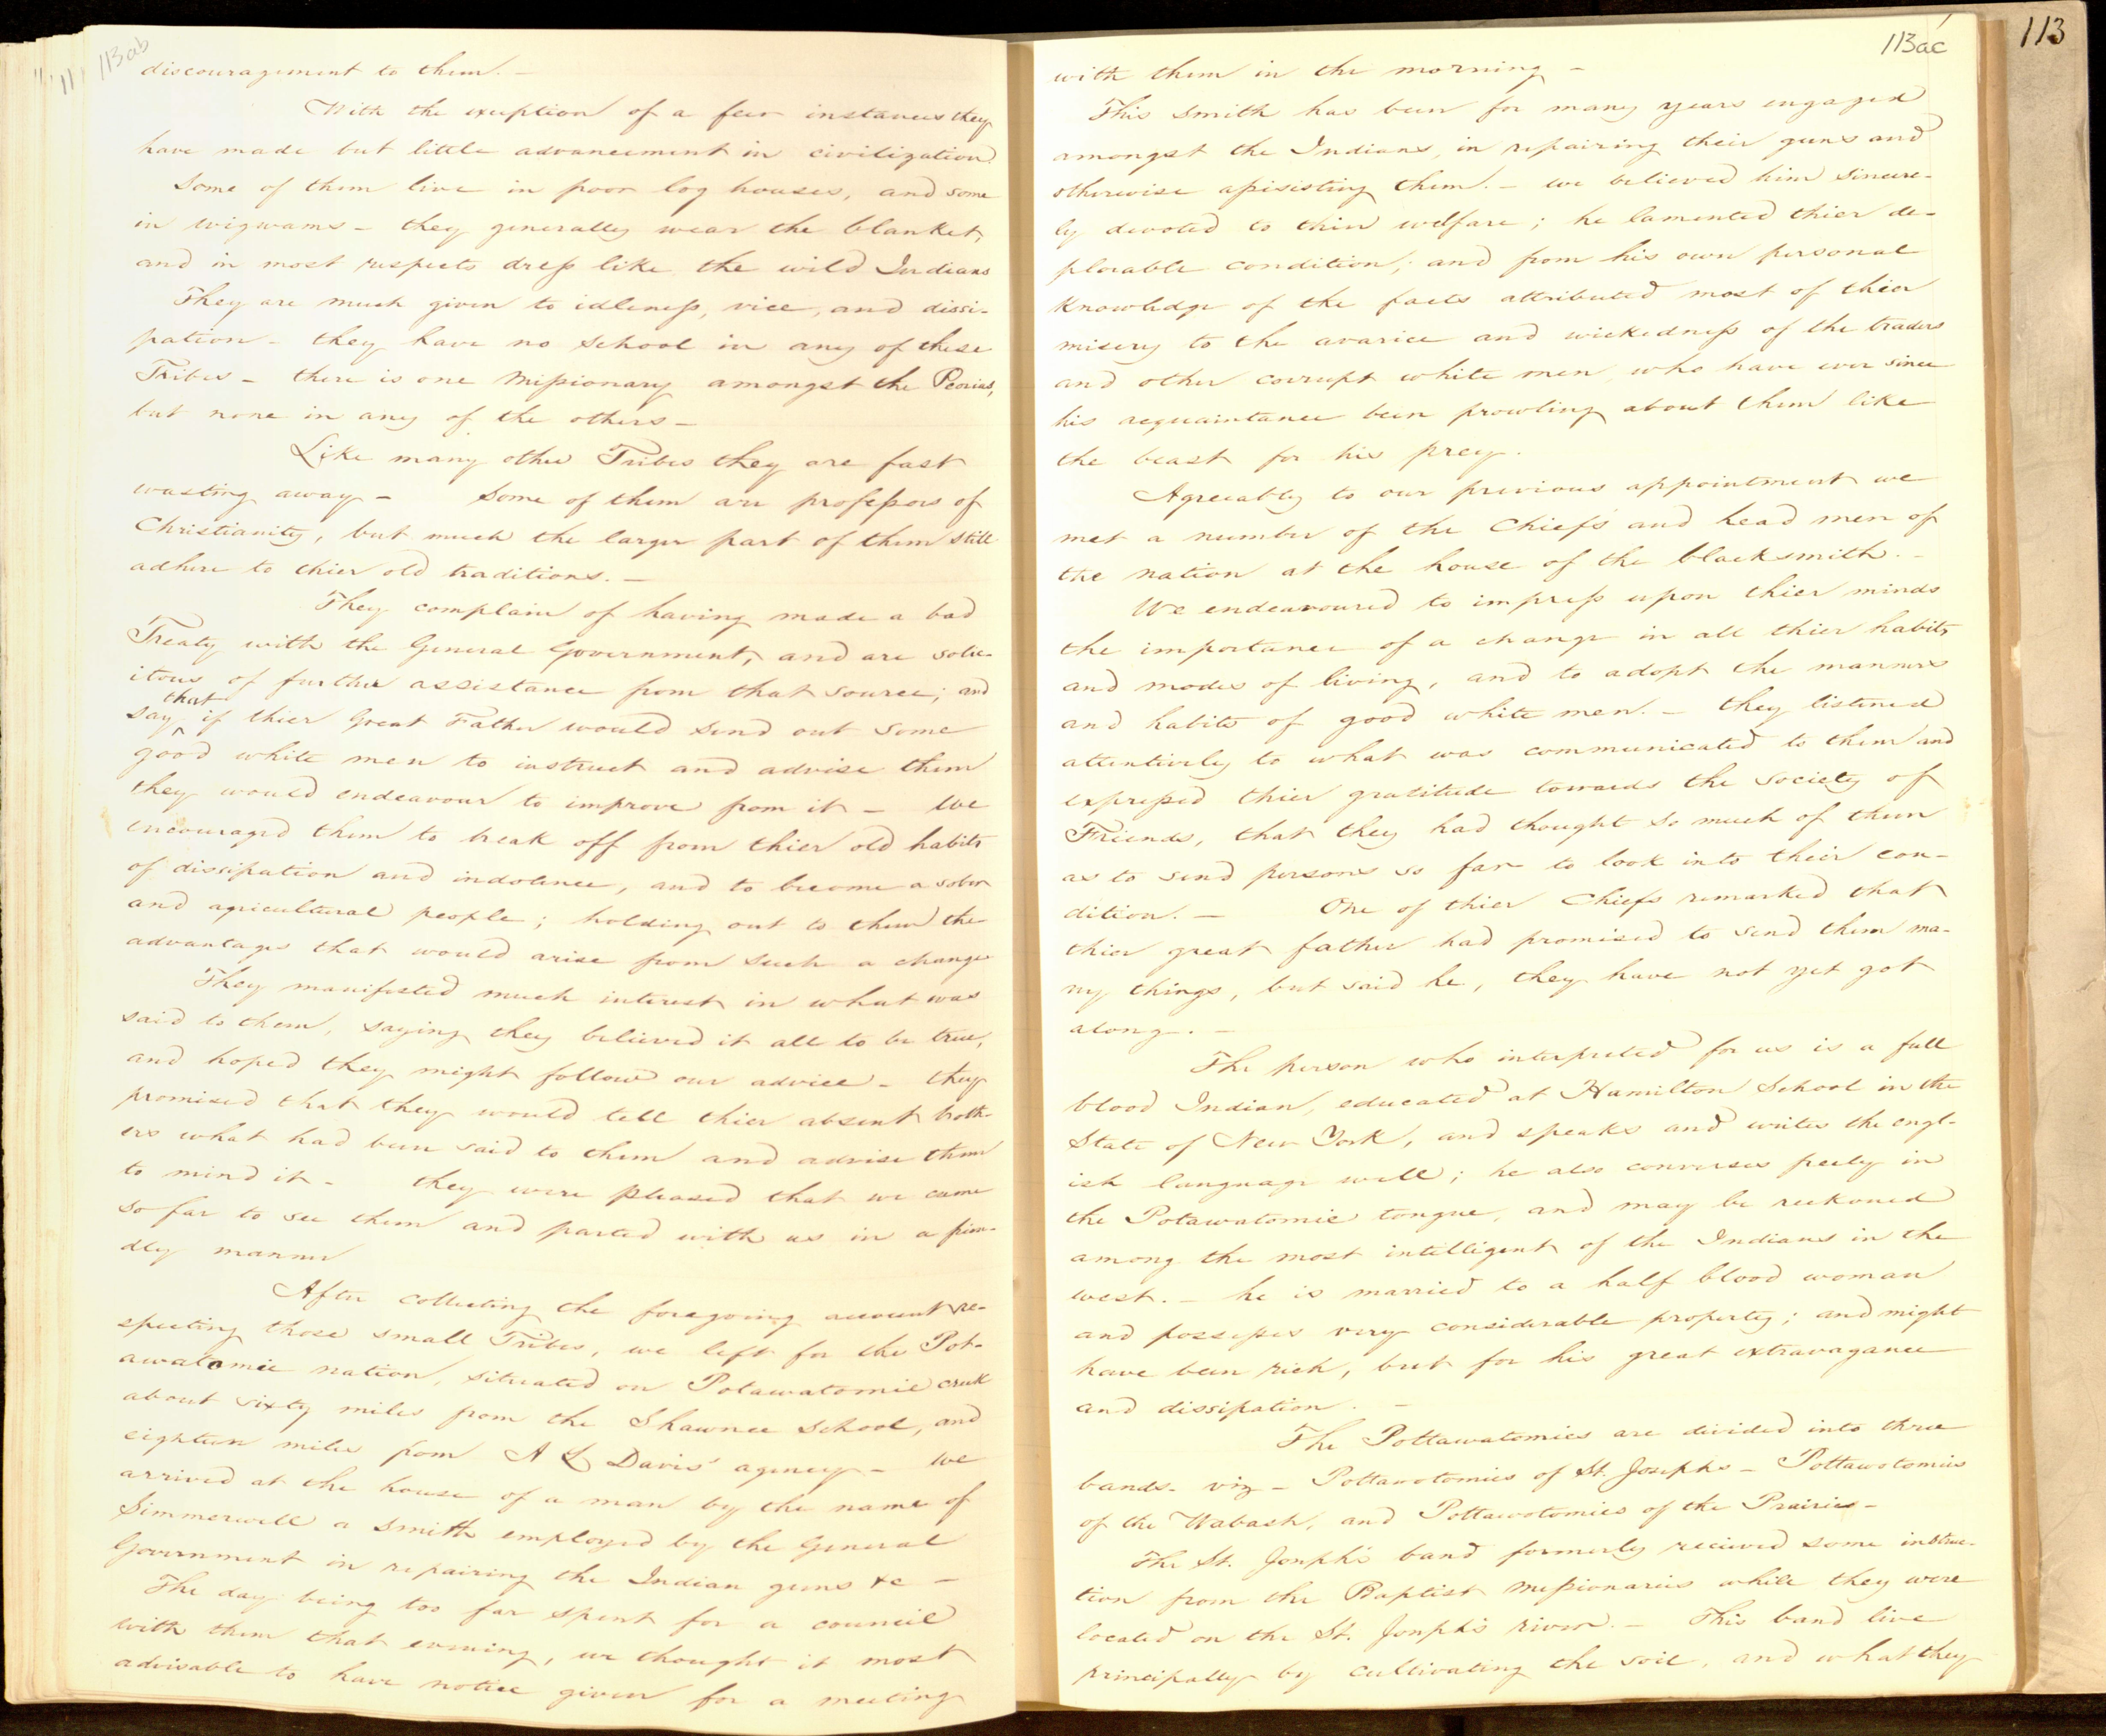 113ab
discouragement to them. —
With the exception of a few instances they
have made but little advancement in civilization.
Some of them live in poor log houses, and some
in wigwams – they generally wear the blanket,
and in most respects dress like the wild Indians
They are much given to idleness, vice, and dissi-
pation – they have no school in any of these
Tribes – there is one Missionary amongst the Peorias,
but none in any of the others –
Like many other Tribes they are fast
wasting away – Some of them are professors of
Christianity, but much the larger part of them still
adhere to thier old traditions. —
They complain of having made a bad
Treaty with the General Government, and are solic-
itous of further assistance from that source; and
that
say ^ if thier Great Father would send out some
good white men to instruct and advise them
they would endeavour to improve from it – We
encouraged them to break off from thier old habits
of dissipation and indolence, and to become a sober
and agricultural people; holding out to them the
advantages that would arise from such a change
They manifested much interest in what was
said to them, saying they believed it all to be true,
and hoped they might follow our advice – they
promised that they would tell thier absent broth-
ers what had been said to them and advise them
to mind it – they were pleased that we came
so far to see them and parted with us in a frien-
dly manner
After collecting the foregoing account re-
specting those small Tribes, we left for the Pot-
awatomie nation, situated on Potawatomie creek
about sixty miles from the Shawnee School, and
eighteen miles from A L Davis' agency – we
arrived at the house of a man by the name of
Simmerwell a smith employed by the General
Government in repairing the Indian guns &c —
The day being too far spent for a council
with them that evening, we thought it most
advisable to have notice given for a meeting
113
113ac
with them in the morning –
This smith has been for many years engaged
amongst the Indians, in repairing their guns and
otherwise assisting them. – we believed him sincere-
ly devoted to thier welfare; he lamented thier de-
plorable condition; and from his own personal
knowledge of the facts attributed most of thier
misery to the avarice and wickedness of the traders
and other corrupt white men who have ever since
his acquaintance been prowling about them like
the beast for his prey.
Agreeably to our previous appointment we
met a number of the Chiefs and head men of
the nation at the house of the blacksmith. –
We endeavoured to impress upon thier minds
the importance of a change in all thier habits
and modes of living, and to adopt the manners
and habits of good white men. – they listened
attentively to what was communicated to them and
expressed thier gratitude towards the Society of
Friends, that they had thought so much of them
as to send persons so far to look into their con-
dition. — One of thier Chiefs remarked that
thier great father had promised to send them ma-
ny things, but said he, they have not yet got
along. —
The person who interpreted for us is a full
blood Indian, educated at Hamilton School in the
State of New York, and speaks and writes the engl-
ish language well; he also converses freely in
the Potawatomie tongue, and may be reckoned
among the most intelligent of the Indians in the
west. – he is married to a half blood woman
and possesses very considerable property; and might
have been rich, but for his great extravagance
and dissipation. —
The Pottawatomies are divided into three
bands – viz – Pottawotomies of St. Josephs – Pottawotomies
of the Wabash, and Pottawotomies of the Prairies –
The St. Joseph's band formerly recieved some instruc-
tion from the Baptist Missionaries while they were
located on the St. Joseph's river. – This band live
principally by cultivating the soil, and what they